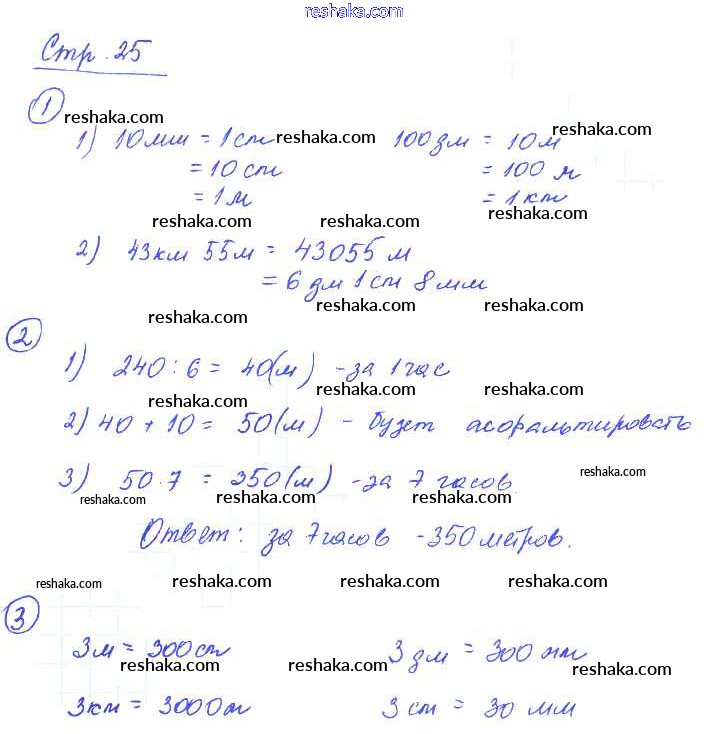 reshaka.com
Стр. 25
1
reshaka.com
1) 10мм = 1см reshaka.com 100дм = 10м reshaka.com
= 10 см = 100 м
= 1м = 1 км
reshaka.com reshaka.com reshaka.com
2) 43км 55м = 43055 м
= 6 дм 1 см 8 мм
reshaka.com reshaka.com reshaka.com
2
1) 240 : 6 = 40(м) - за 1 час
reshaka.com reshaka.com reshaka.com
2) 40 + 10 = 50(м) - будет асфальтировать
reshaka.com
3) 50 · 7 = 350(м) - за 7 часов
reshaka.com reshaka.com reshaka.com
Ответ: за 7 часов - 350 метров.
reshaka.com reshaka.com reshaka.com reshaka.com
3
3м = 300см 3 дм = 300 мм
reshaka.com reshaka.com reshaka.com
3км = 3000м 3 см = 30 мм